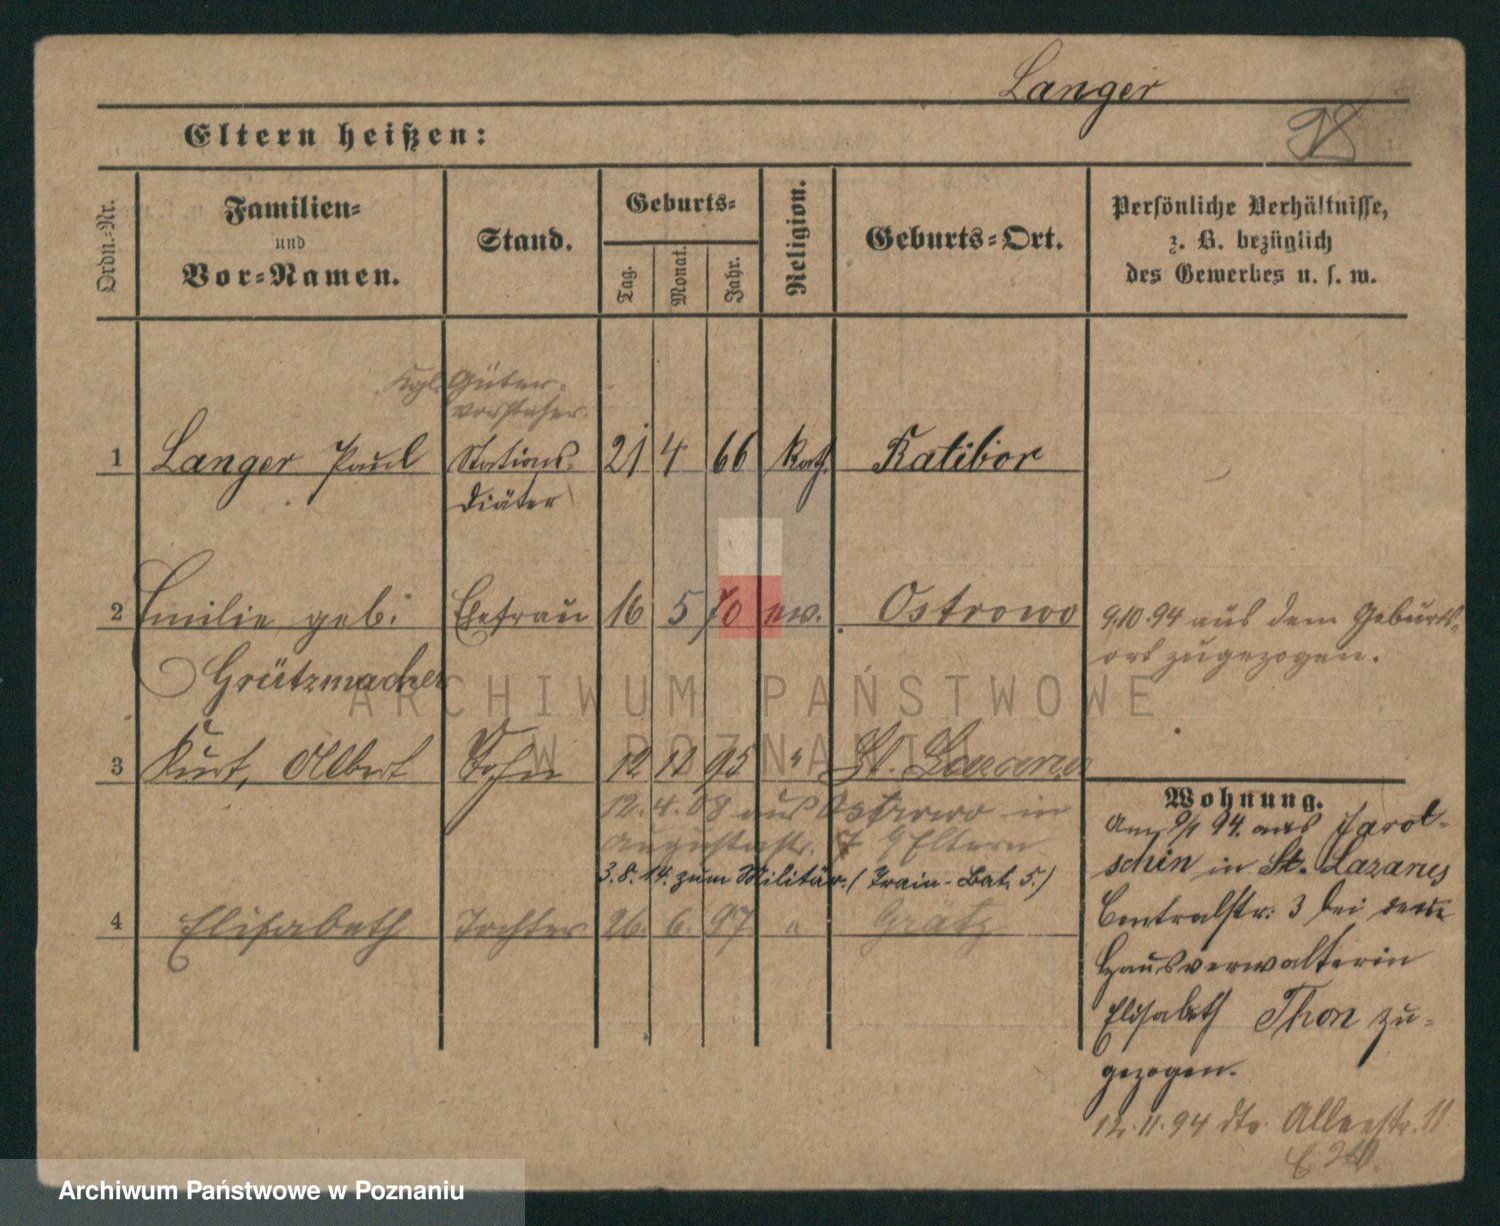 Langer
98
Eltern heißen:
Ordn.-Nr.
Familien-
und
Vor-Namen.
Stand.
Geburts-
Tag.
Monat.
Jahr.
Religion.
Geburts-Ort.
Persönliche Verhältnisse,
z. B. bezüglich
des Gewerbes u. s. w.
Kgl. Güter-
vorsteher.
1 Langer Paul Stations- 21 4 66 kath. Ratibor
Diäter
2 Emilie geb. Ehefrau 16 5 70 ev. Ostrowo
Grützmacher
9.10.94 aus dem Geburts-
ort zugezogen.
3 Kurt, Albert Sohn 12 11 95 " St. Lazarus
12.4.08 aus Ostrowo in
Augustastr. 7 Eltern
3.8.14. zum Militär. (Train-Bat. 5.)
4 Elisabeth Tochter 26. 6. 97 " Grätz
Wohnung.
Am 9/1 94. aus Jarot-
schin in St. Lazarus
Centralstr. 3 bei der
Hausverwalterin
Elisabeth Thon zu-
gezogen.
12.11.94 dto. Alleestr. 11
ARCHIWUM PAŃSTWOWE
W POZNANIU
Archiwum Państwowe w Poznaniu